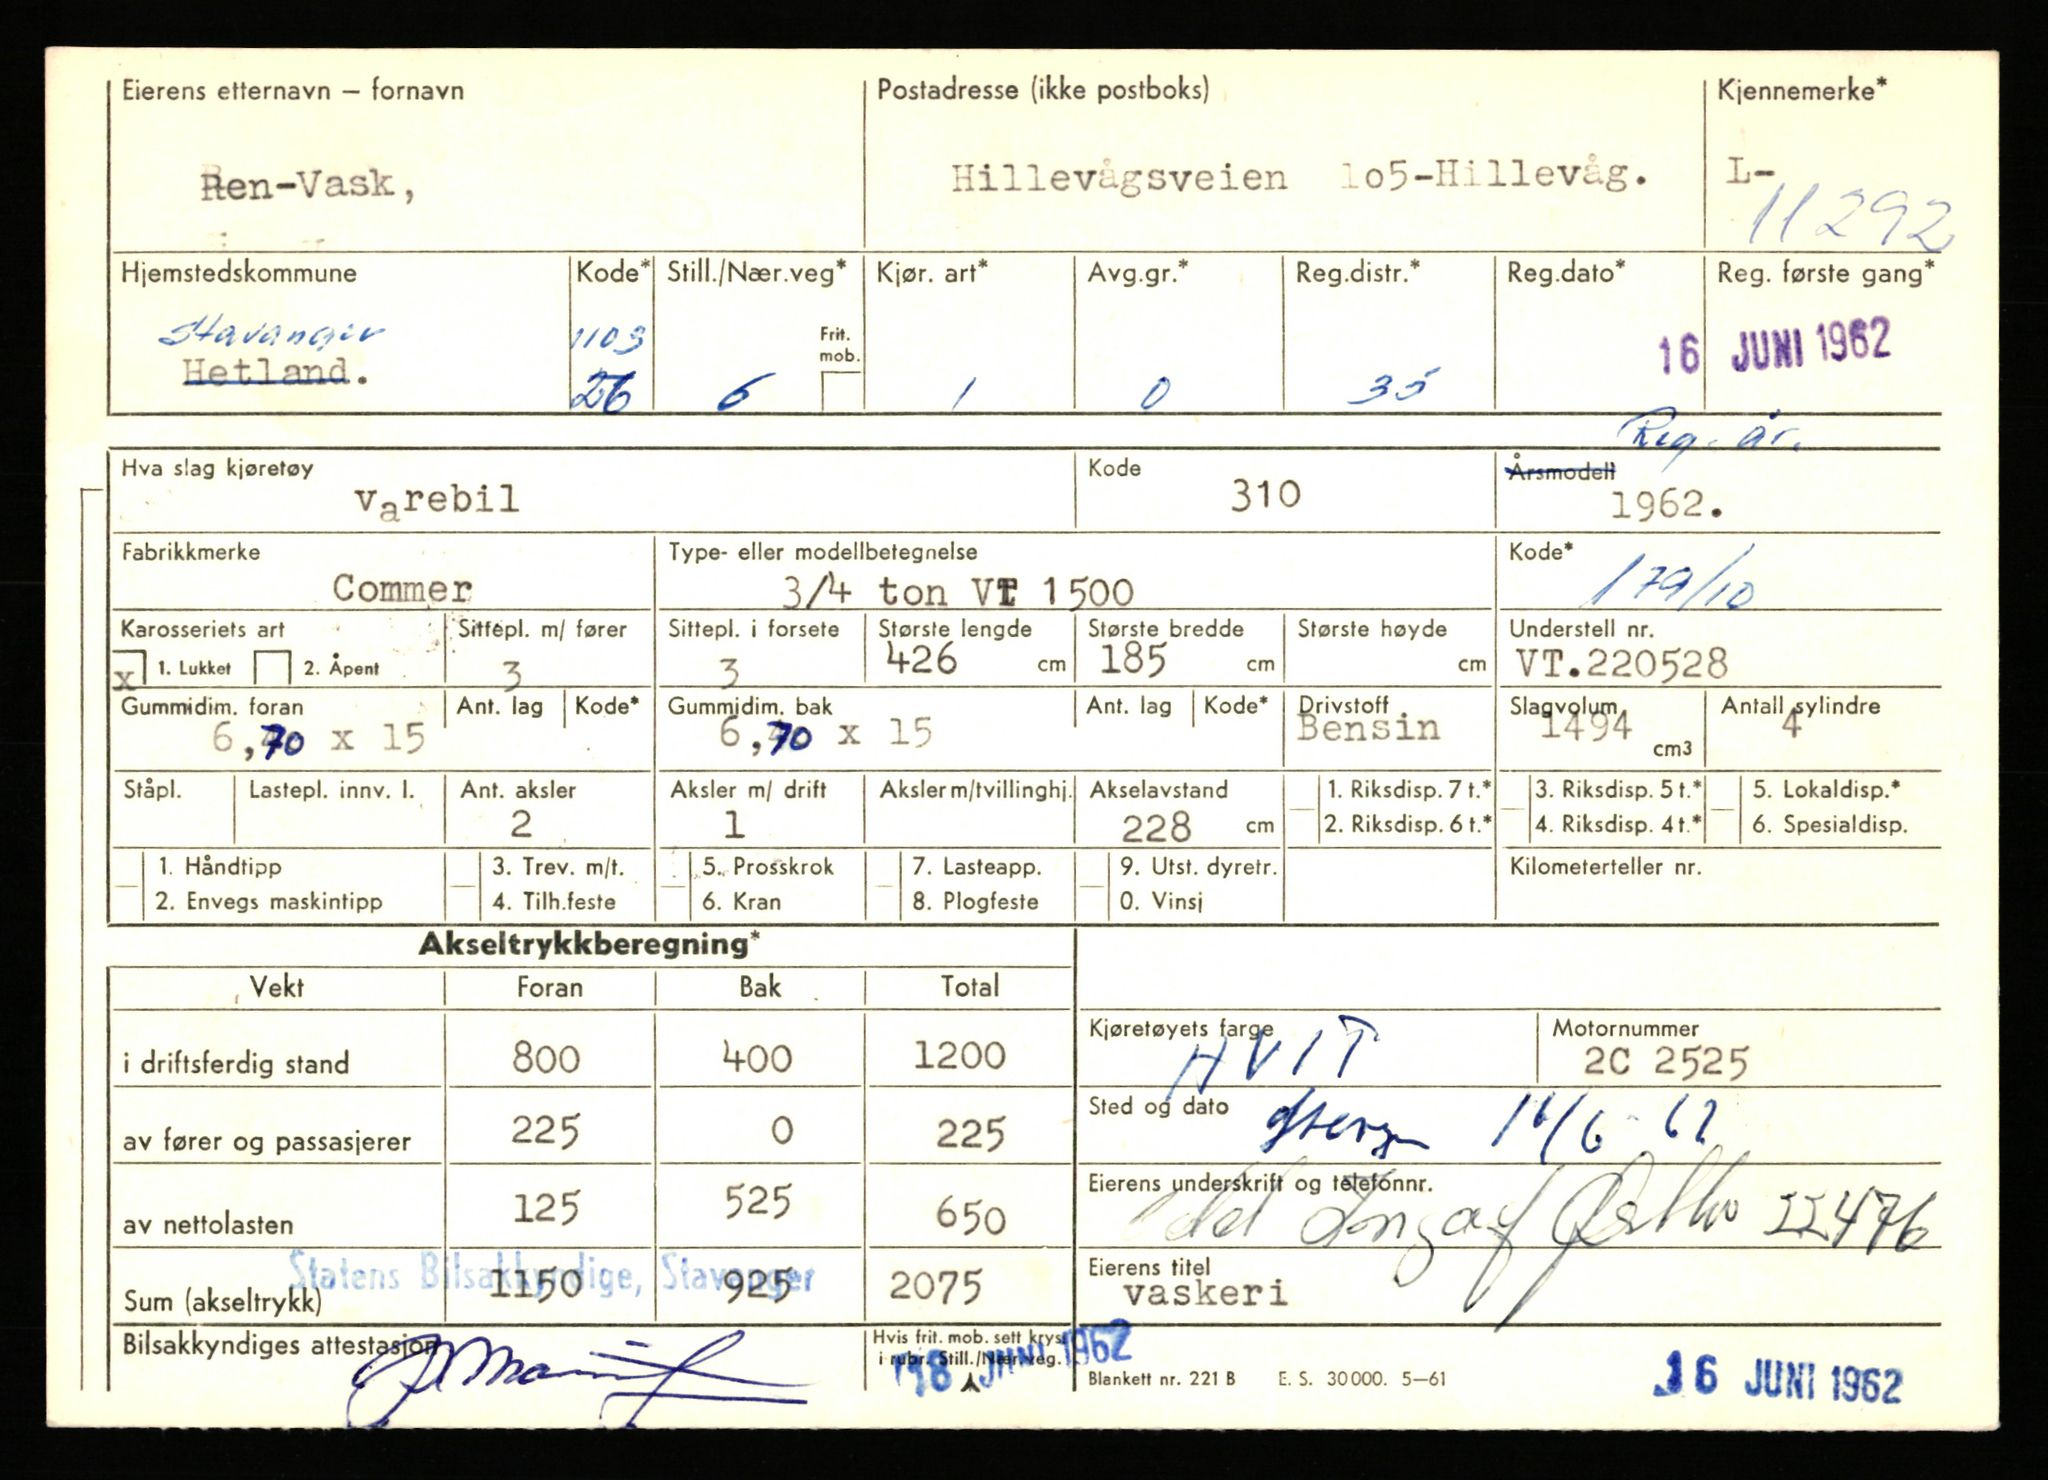 Eierens etternavn – fornavn
Ren-Vask,
Postadresse (ikke postboks)
Hillevågsveien 1o5-Hillevåg.
Kjennemerke*
L-
11292
Hjemstedskommune
Stavanger
Hetland.
Kode*
1103
26
Still./Nær.veg*
6
Frit.
mob.
Kjør. art*
1
Avg.gr.*
0
Reg.distr.*
35
Reg.dato*
Reg. første gang*
16 JUNI 1962
Reg. år.
Hva slag kjøretøy
varebil
Kode
310
Årsmodell
1962.
Fabrikkmerke
Commer
Type- eller modellbetegnelse
3/4 ton VT 1500
Kode*
179/10
Karosseriets art
x 1. Lukket 2. Åpent
Sittepl. m/ fører
3
Sittepl. i forsete
3
Største lengde
426 cm
Største bredde
185 cm
Største høyde
cm
Understell nr.
VT.220528
Gummidim. foran
6,70 x 15
Ant. lag
Kode*
Gummidim. bak
6,70 x 15
Ant. lag
Kode*
Drivstoff
Bensin
Slagvolum
1494 cm3
Antall sylindre
4
Ståpl.
Lastepl. innv. l.
Ant. aksler
2
Aksler m/ drift
1
Aksler m/tvillinghj.
Akselavstand
228 cm
1. Riksdisp. 7 t.*
2. Riksdisp. 6 t.*
3. Riksdisp. 5 t.*
4. Riksdisp. 4 t.*
5. Lokaldisp.*
6. Spesialdisp.
1. Håndtipp
2. Envegs maskintipp
3. Trev. m/t.
4. Tilh.feste
5. Prosskrok
6. Kran
7. Lasteapp.
8. Plogfeste
9. Utst. dyretr.
0. Vinsj
Kilometerteller nr.
Akseltrykkberegning*
Vekt Foran Bak Total
i driftsferdig stand 800 400 1200
av fører og passasjerer 225 0 225
av nettolasten 125 525 650
Statens Bilsakkyndige, Stavanger
Sum (akseltrykk) 1150 925 2075
Bilsakkyndiges attestasjon
Hvis frit. mob. sett kryss
i rubr. Still./Nær.veg.
18 JUNI 1962
Kjøretøyets farge
HVIT
Motornummer
2C 2525
Sted og dato
16/6-62
Eierens underskrift og telefonnr.
22476
Eierens titel
vaskeri
Blankett nr. 221 B E. S. 30000. 5–61
16 JUNI 1962